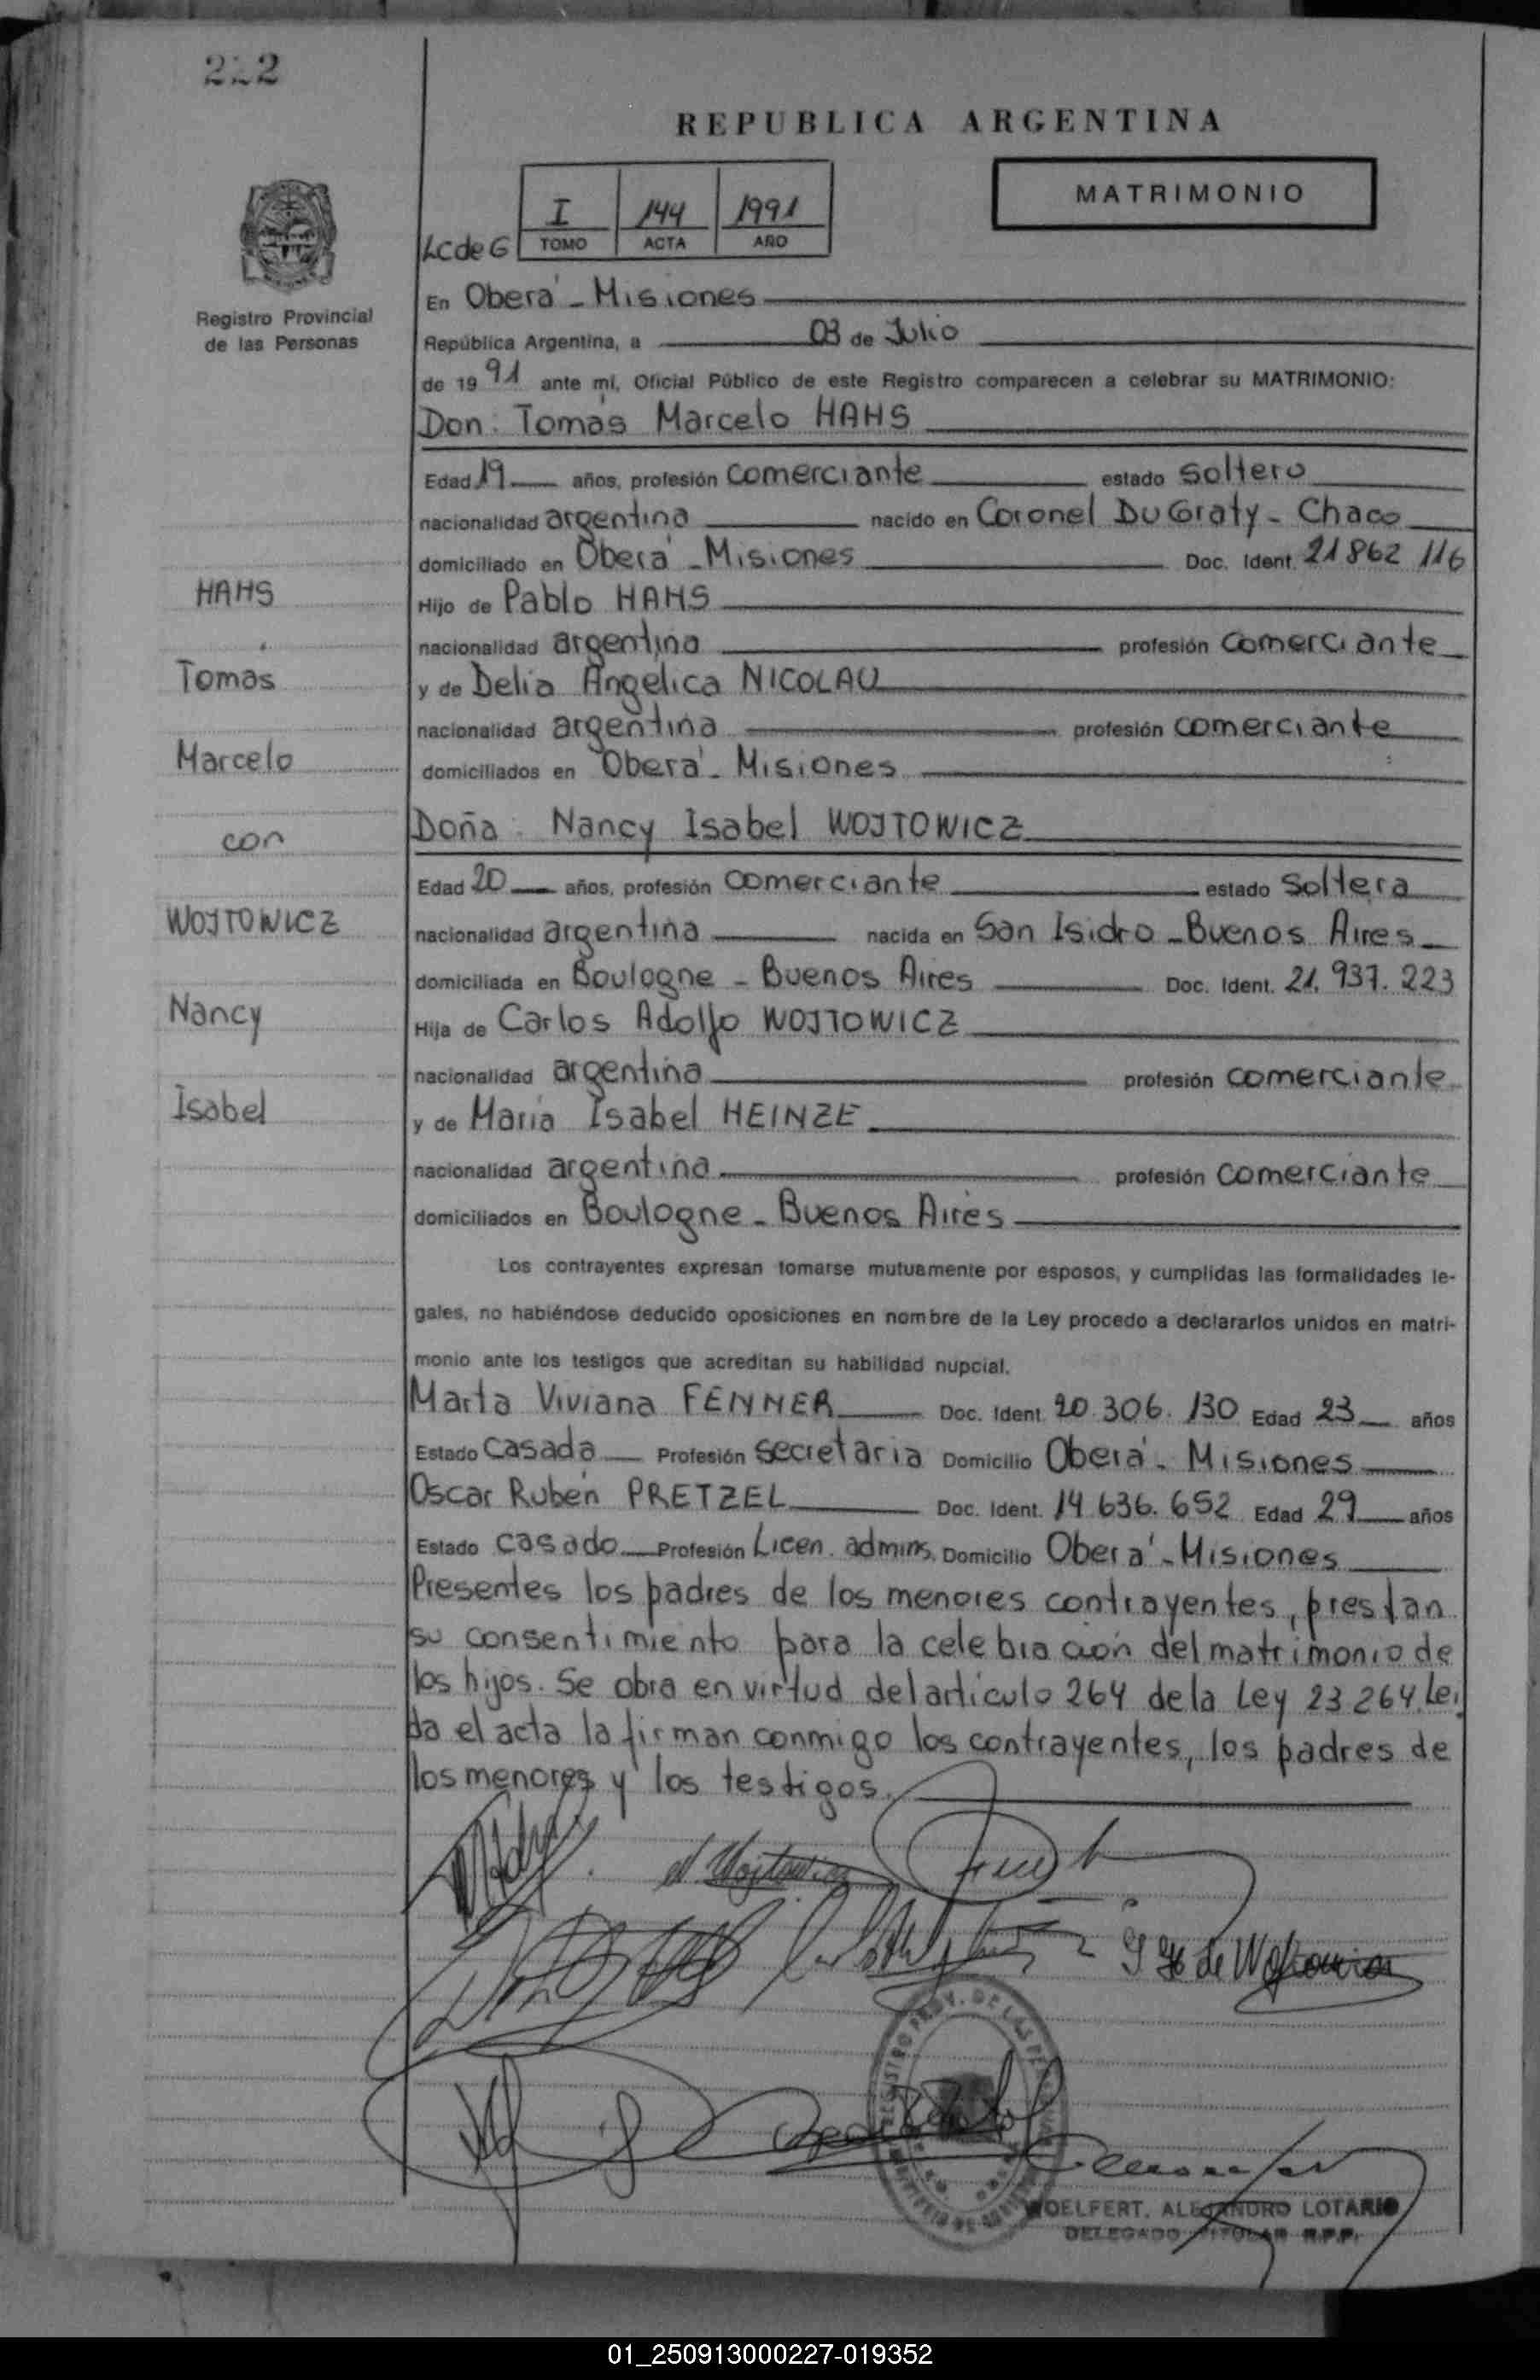 222
REPUBLICA ARGENTINA
MATRIMONIO
I 144 1991
LC de G TOMO ACTA AÑO
Registro Provincial
de las Personas
En Oberá - Misiones
República Argentina, a 03 de Julio
de 1991 ante mí, Oficial Público de este Registro comparecen a celebrar su MATRIMONIO:
Don: Tomás Marcelo HAHS
Edad 19 años, profesión comerciante estado soltero
nacionalidad argentina nacido en Coronel Du Graty - Chaco
domiciliado en Oberá - Misiones Doc. Ident. 21 862 116
HAHS
Hijo de Pablo HAHS
nacionalidad argentina profesión comerciante
Tomás
y de Delia Angelica NICOLAU
nacionalidad argentina profesión comerciante
Marcelo
domiciliados en Oberá - Misiones
con
Doña: Nancy Isabel WOJTOWICZ
Edad 20 años, profesión comerciante estado soltera
WOJTOWICZ
nacionalidad argentina nacida en San Isidro - Buenos Aires
domiciliada en Boulogne - Buenos Aires Doc. Ident. 21.937.223
Nancy
Hija de Carlos Adolfo WOJTOWICZ
nacionalidad argentina profesión comerciante
Isabel
y de María Isabel HEINZE
nacionalidad argentina profesión comerciante
domiciliados en Boulogne - Buenos Aires
Los contrayentes expresan tomarse mutuamente por esposos, y cumplidas las formalidades le-
gales, no habiéndose deducido oposiciones en nombre de la Ley procedo a declararlos unidos en matri-
monio ante los testigos que acreditan su habilidad nupcial.
Marta Viviana FENNER Doc. Ident. 20.306.130 Edad 23 años
Estado casada Profesión secretaria Domicilio Oberá - Misiones
Oscar Rubén PRETZEL Doc. Ident. 14.636.652 Edad 29 años
Estado casado Profesión Licen. admins. Domicilio Oberá - Misiones
Presentes los padres de los menores contrayentes, prestan
su consentimiento para la celebración del matrimonio de
los hijos. Se obra en virtud del artículo 264 de la Ley 23 264. Leí
da el acta la firman conmigo los contrayentes, los padres de
los menores y los testigos.
N Wojtowicz
de Wojtowicz
WOELFERT, ALEJANDRO LOTARIO
DELEGADO TITULAR R.P.P.
01_250913000227-019352